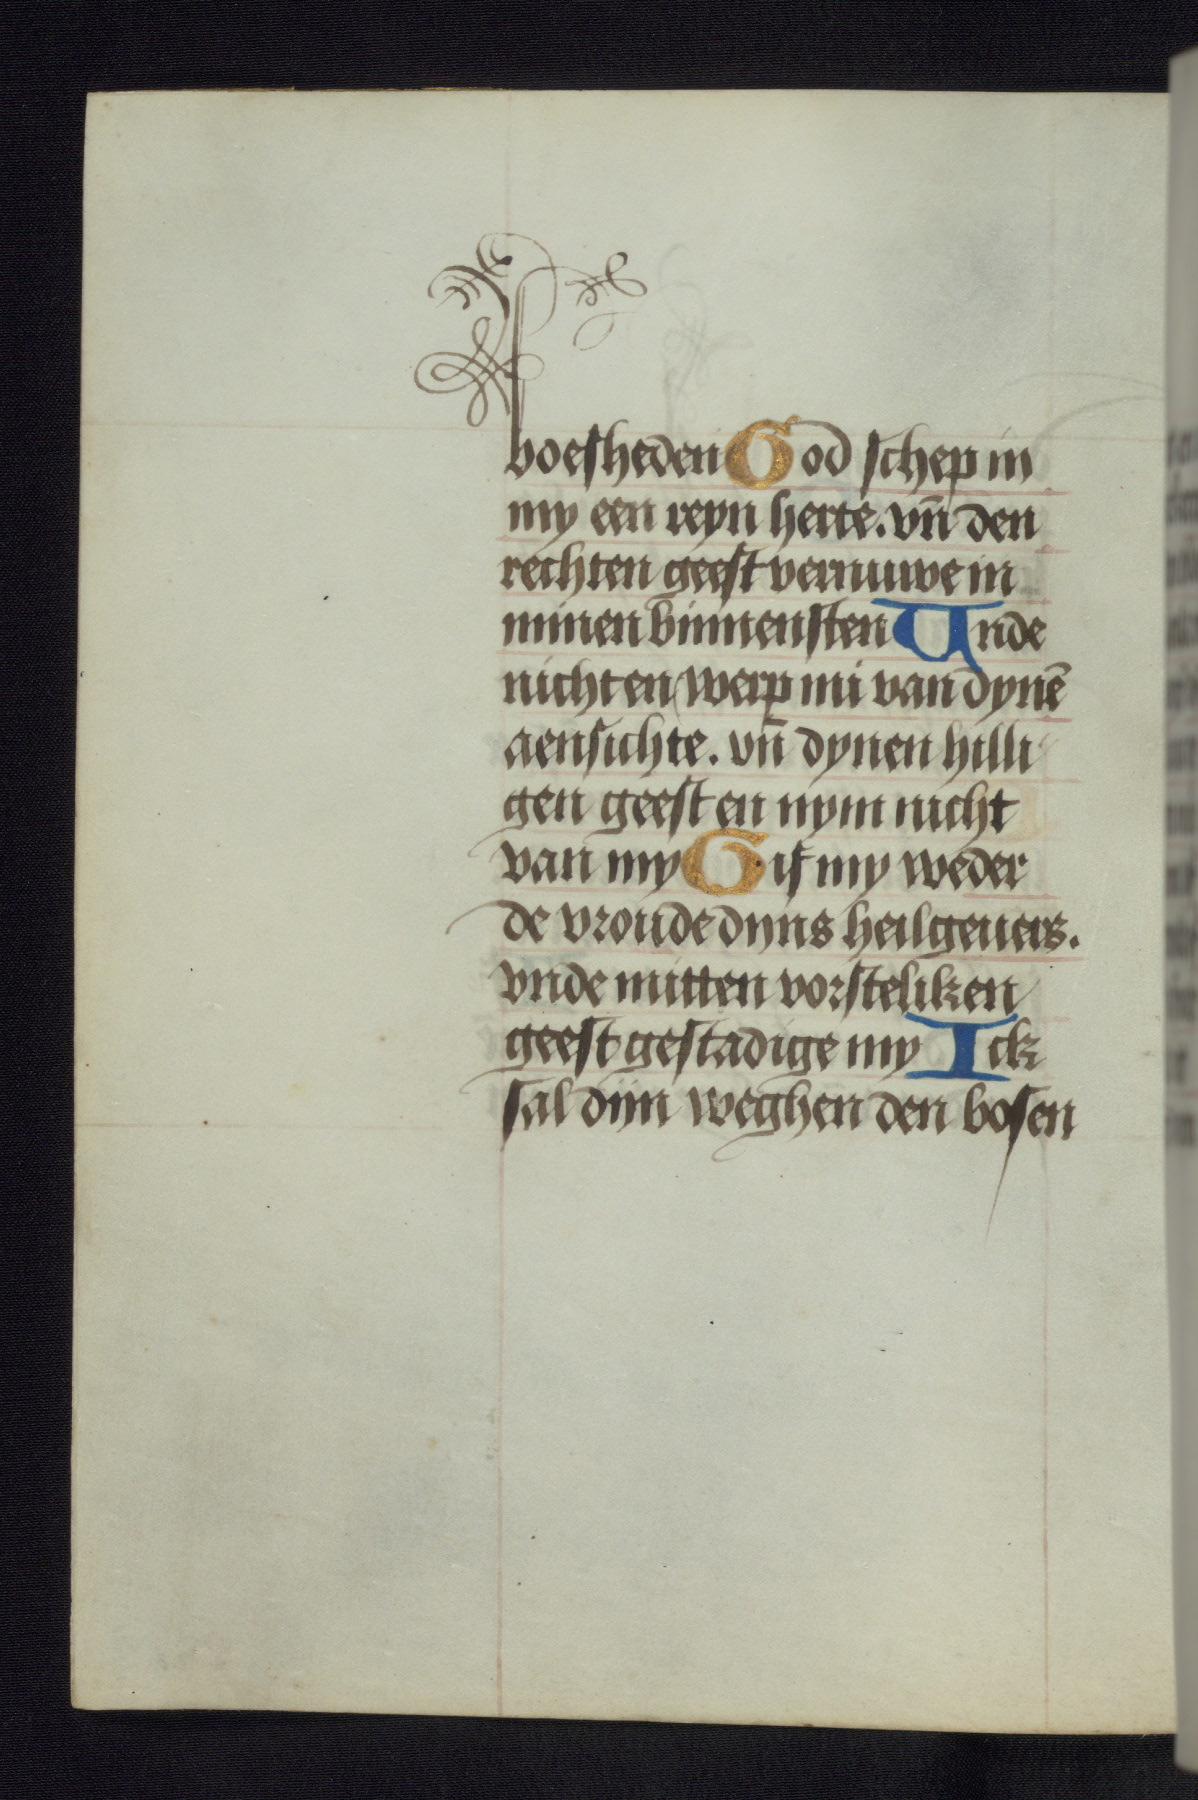 boesheden God schep in
my een reyn herte. vn̄ den
rechten geest vernuuwe in
minen binnensten Unde
nicht en werp mi van dynē
aensichte. vn̄ dynen hilli
gen geest en nym nicht
van my Gif my weder
de vroude dyns heilgeuers.
vnde mitten vorsteliken
geest gestadige my Ick
sal dijn weghen den bosen